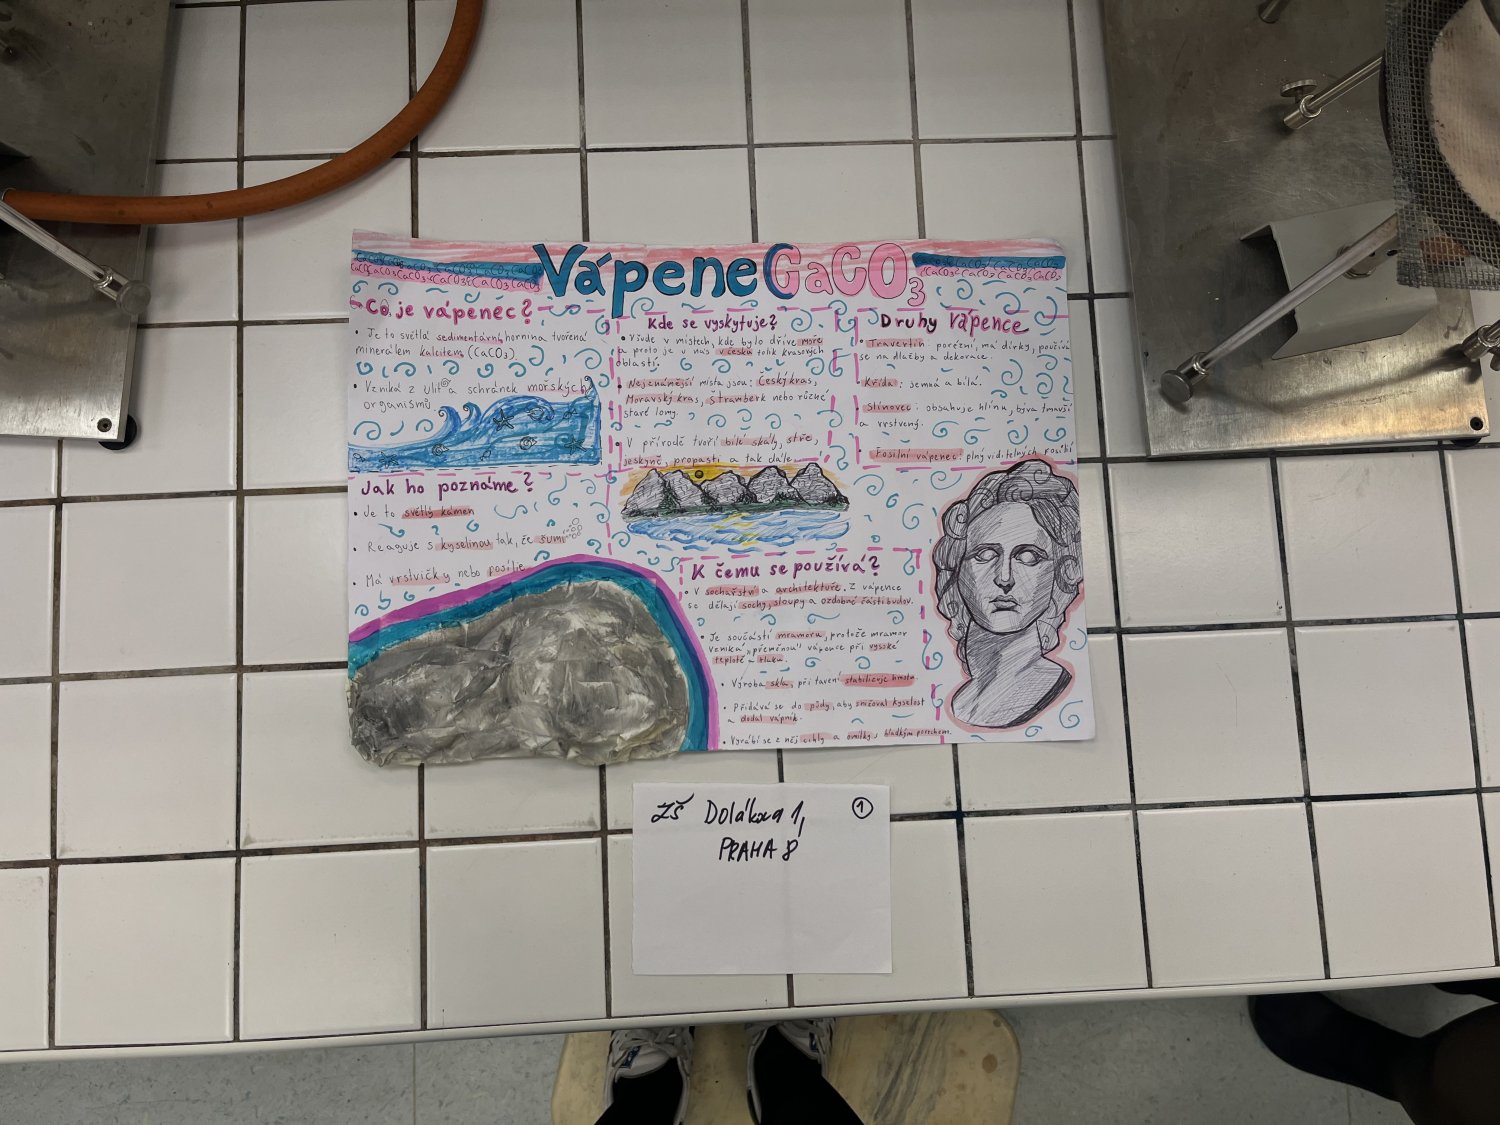 VápeneCaCO₃
Co je vápenec?
• Je to světlá sedimentární hornina tvořená
minerálem kalcitem (CaCO₃)
• Vzniká z ulit a schránek mořských
organismů
Jak ho poznáme?
• Je to světlý kámen
• Reaguje s kyselinou tak, že šumí
• Má vrstvičky nebo
Kde se vyskytuje?
• Všude v místech, kde bylo dříve moře
a proto je u nás v česku tolik krasových
oblastí.
• Nejznámější místa jsou: Český kras,
Moravský kras, Štramberk nebo různé
staré lomy.
• V přírodě tvoří bílé skály,
jeskyně, propasti a tak dále.
Druhy Vápence
• Travertin: porézní, má dírky, používá
se na dlažby a dekorace.
• Křída: jemná a bílá.
• Slínovec: obsahuje hlínu, bývá tmavší
a vrstvený.
• Fosilní vápenec: plný viditelných fosílií
K čemu se používá?
• V sochařství a architektuře. Z vápence
se dělají sochy, sloupy a ozdobné části budov.
• Je součástí mramoru, protože mramor
vzniká „přeměnou" vápence při vysoké
teplotě a tlaku.
• Výroba skla, při tavení stabilizuje hmotu
• Přidává se do půdy, aby snižoval kyselost
a dodal vápník.
• Vyrábí se z něj cihly a omítky s hladkým povrchem.
ZŠ Dolákova 1,
PRAHA 8
1